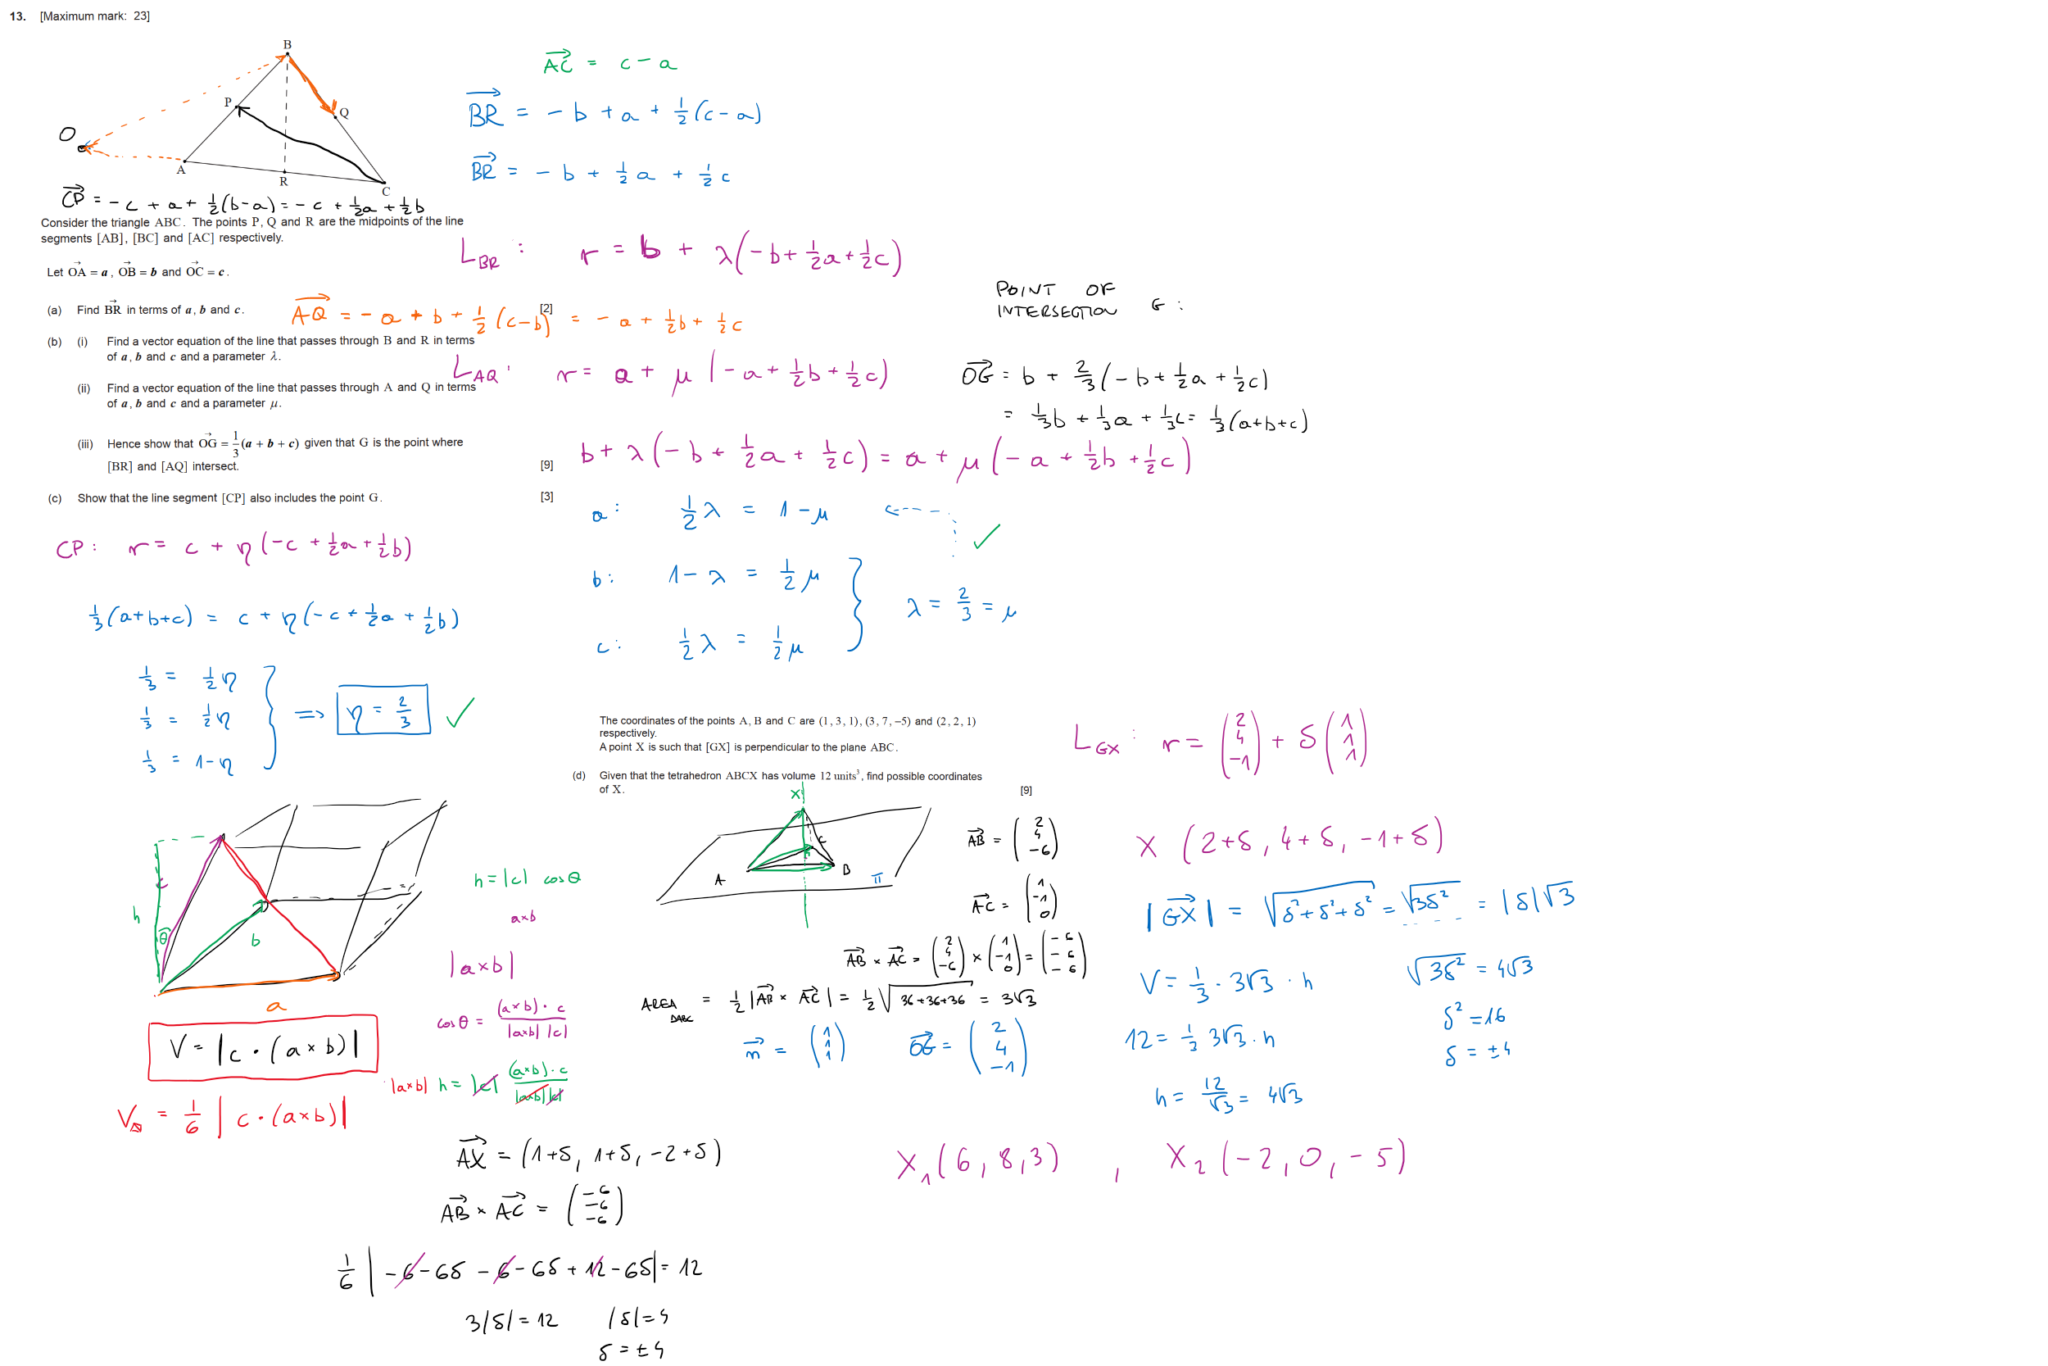 13. [Maximum mark: 23]
B
P
Q
O
A
R
C
AC = c - a
BR = - b + a + 1/2 (c - a)
BR = - b + 1/2 a + 1/2 c
CP = - c + a + 1/2 (b - a) = - c + 1/2 a + 1/2 b
Consider the triangle ABC. The points P, Q and R are the midpoints of the line
segments [AB], [BC] and [AC] respectively.
Let OA = a, OB = b and OC = c.
L_BR : r = b + λ(- b + 1/2 a + 1/2 c)
(a) Find BR in terms of a, b and c. [2]
AQ = - a + b + 1/2 (c - b) = - a + 1/2 b + 1/2 c
(b) (i) Find a vector equation of the line that passes through B and R in terms
of a, b and c and a parameter λ.
L_AQ : r = a + μ(- a + 1/2 b + 1/2 c)
(ii) Find a vector equation of the line that passes through A and Q in terms
of a, b and c and a parameter μ.
(iii) Hence show that OG = 1/3 (a + b + c) given that G is the point where
[BR] and [AQ] intersect. [9]
(c) Show that the line segment [CP] also includes the point G. [3]
POINT OF
INTERSECTION G :
OG = b + 2/3 (- b + 1/2 a + 1/2 c)
= 1/3 b + 1/3 a + 1/3 c = 1/3 (a + b + c)
b + λ(- b + 1/2 a + 1/2 c) = a + μ(- a + 1/2 b + 1/2 c)
a : 1/2 λ = 1 - μ ✓
b : 1 - λ = 1/2 μ
c : 1/2 λ = 1/2 μ
λ = 2/3 = μ
CP : r = c + η(- c + 1/2 a + 1/2 b)
1/3 (a + b + c) = c + η(- c + 1/2 a + 1/2 b)
1/3 = 1/2 η
1/3 = 1/2 η
1/3 = 1 - η
=> η = 2/3 ✓
The coordinates of the points A, B and C are (1, 3, 1), (3, 7, −5) and (2, 2, 1)
respectively.
A point X is such that [GX] is perpendicular to the plane ABC.
(d) Given that the tetrahedron ABCX has volume 12 units³, find possible coordinates
of X. [9]
X
A
C
B
π
h
θ
c
b
a
h = |c| cos θ
a×b
|a×b|
cos θ = (a×b)·c / |a×b| |c|
|a×b| h = |c| (a×b)·c / |a×b||c|
V = |c · (a×b)|
V = 1/6 |c · (a×b)|
AB = (2 4 -6)
AC = (1 -1 0)
AB × AC = (2 4 -6) × (1 -1 0) = (-6 -6 -6)
AREA ΔABC = 1/2 |AB × AC| = 1/2 √36+36+36 = 3√3
n = (1 1 1) OG = (2 4 -1)
L_GX : r = (2 4 -1) + δ(1 1 1)
X (2+δ, 4+δ, -1+δ)
|GX| = √δ²+δ²+δ² = √3δ² = |δ|√3
V = 1/3 · 3√3 · h
12 = 1/3 3√3 · h
h = 12/√3 = 4√3
√3δ² = 4√3
δ² = 16
δ = ±4
X₁(6, 8, 3) , X₂(-2, 0, -5)
AX = (1+δ, 1+δ, -2+δ)
AB × AC = (-6 -6 -6)
1/6 |-6-6δ -6-6δ +12-6δ| = 12
3|δ| = 12 |δ| = 4
δ = ±4